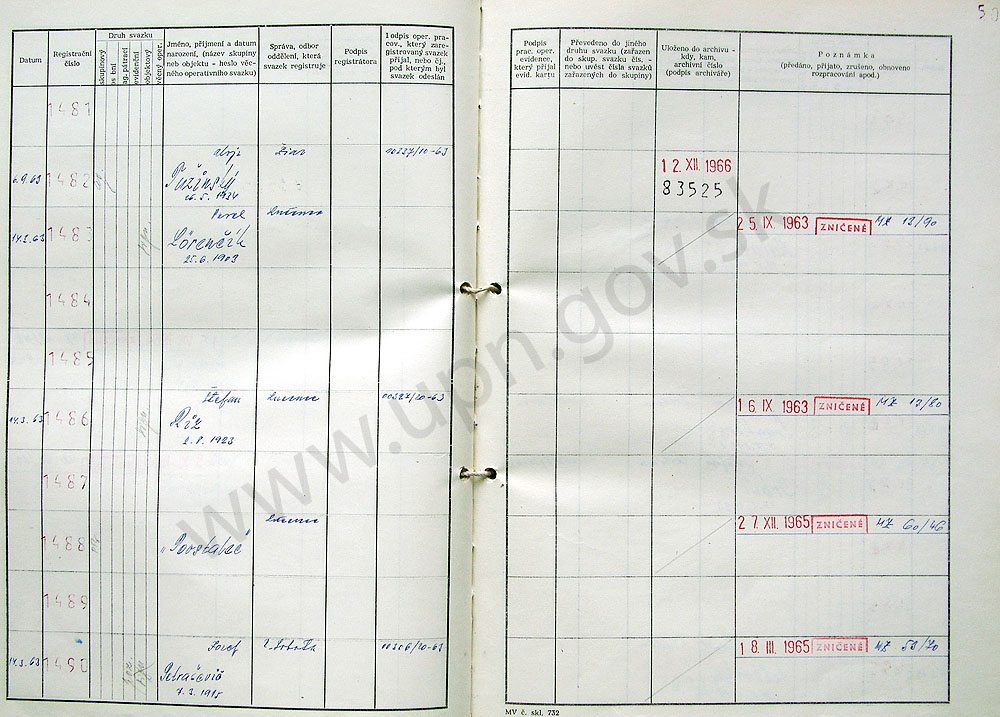 Datum
Registrační číslo
Druh svazku
skupinový
evidenční
objektový
Jméno, příjmení a datum
narození, (název skupiny
neb objektu - heslo věc-
ného operativního svazku)
Správa, odbor
oddělení, která
svazek registruje
Podpis
registrátora
Podpis oper. pra-
cov., který zare-
gistrovaný svazek
přijal, nebo čj.,
pod kterým byl
svazek odeslán
Podpis
prac. oper.
evidence,
který přijal
evid. kartu
Převedeno do jiného
druhu svazku (zařazen
do skup. svazku čís, -
nebo uvést čísla svazků
zařazených do skupiny)
Uloženo do archivu -
kdy, kam,
archivní číslo
(podpis archiváře)
Poznámka
(předáno, přijato, zrušeno, obnoveno
rozpracování apod.)
1481
6.9.63 1482
Pužinský
26.5.1934
12. XII. 1966
83525
14.3.63 1483
Pavel
Lučenec
Lörenčík
25.6.1909
25. IX. 1963 ZNIČENÉ MZ 12/90
1484
1485
14.3.63 1486
Štefan
Lučenec
00327/20-63
2.8.1923
16. IX. 1963 ZNIČENÉ MZ 12/80
1487
1488
Lučenec
27. XII. 1965 ZNIČENÉ MZ 60/46
1489
14.3.63 1490
Jozef
R. Sobota
00306/20-63
Petrašovič
7.3.1915
18. III. 1965 ZNIČENÉ MZ 53/70
MV č. skl. 732
www.upn.gov.sk